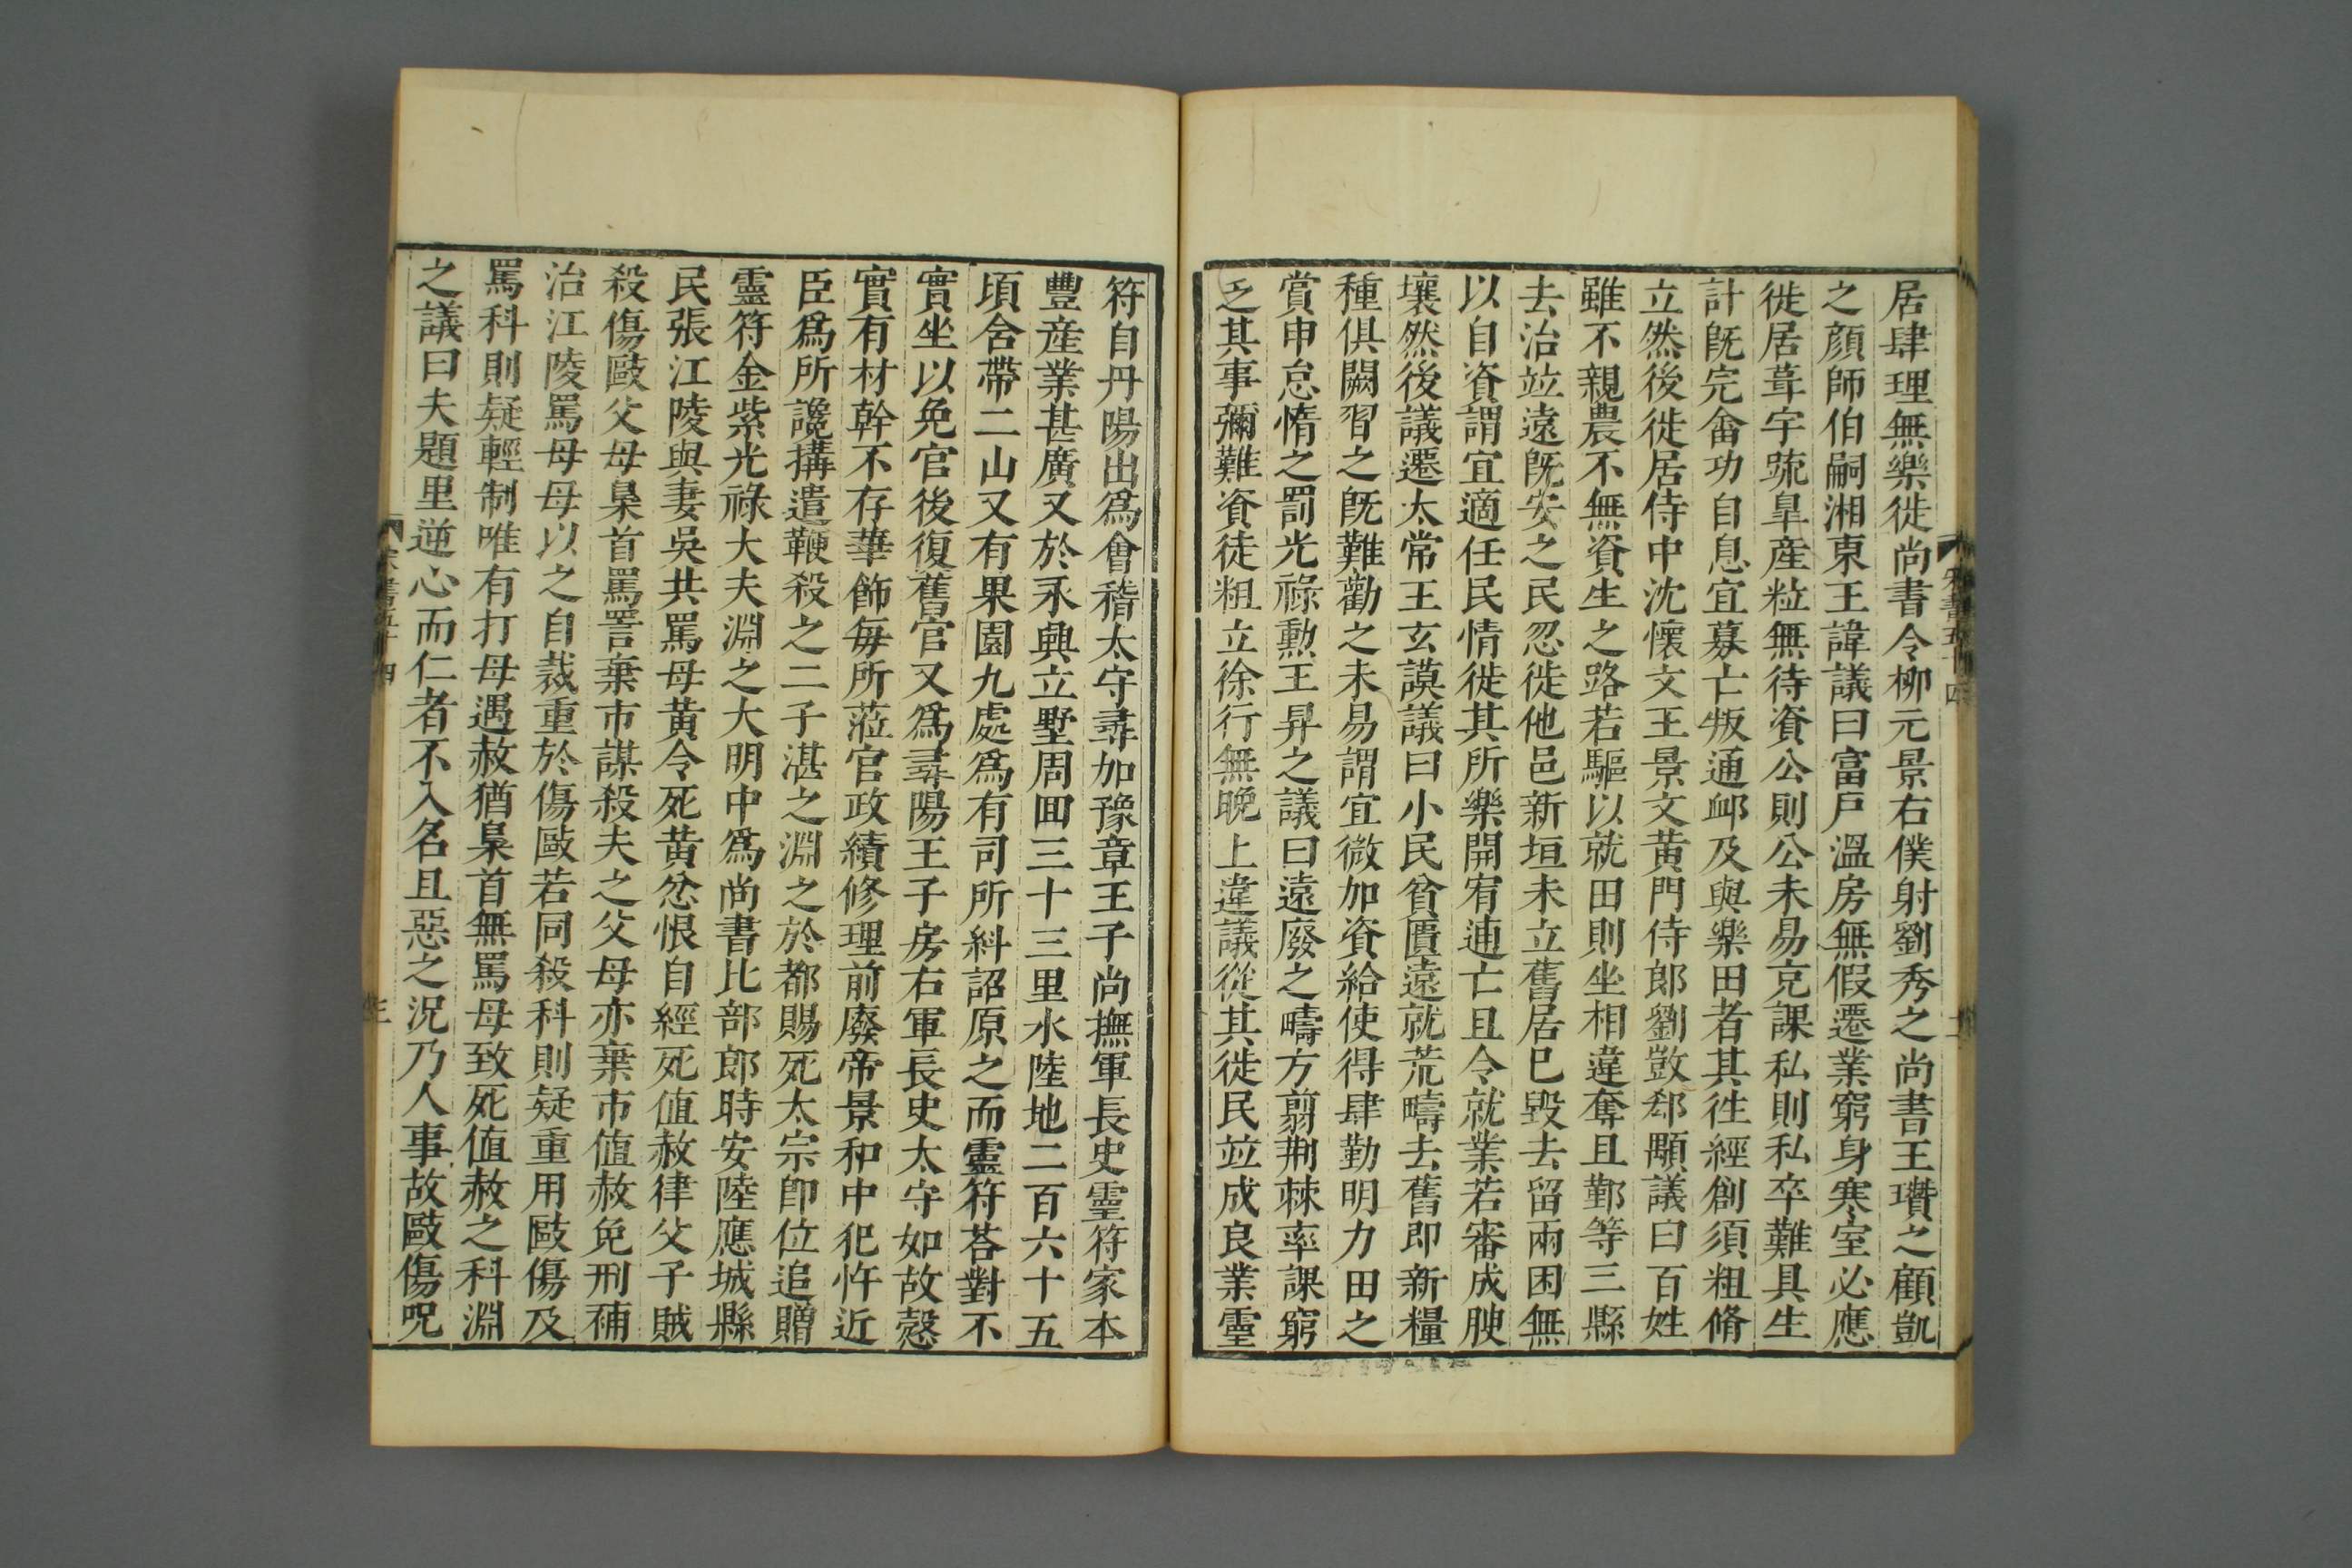 居肆理無樂徙尚書令柳元景右僕射劉秀之尚書王瓚之顧凱
之顏師伯嗣湘東王諱議曰富戶溫房無假遷業窮身寒室必應
徙居葺宇疏皐産粒無待資公則公未易充課私則私卒難具生
計旣完畬功自息宜募亡叛通䘏及與樂田者其徃經創須粗脩
立然後徙居侍中沈懷文王景文黃門侍郎劉敳郄顒議曰百姓
雖不親農不無資生之路若驅以就田則坐相違奪且鄞等三縣
去治竝遠旣安之民忽徙他邑新垣未立舊居巳毀去留兩困無
以自資謂宜適任民情徙其所樂開宥逋亡且令就業若審成腴
壤然後議遷太常王玄謨議曰小民貧匱遠就荒疇去舊即新糧
種俱闕習之旣難勸之未易謂宜微加資給使得肆勤明力田之
賞申怠惰之罰光祿勲王昇之議曰遠廢之疇方翦荆棘率課窮
乏其事彌難資徒粗立徐行無晚上違議從其徙民竝成良業靈
符自丹陽出爲會稽太守尋加豫章王子尚撫軍長史靈符家本
豐産業甚廣又於永興立墅周囬三十三里水陸地二百六十五
頃含帶二山又有果園九處爲有司所糾詔原之而靈符荅對不
實坐以免官後復舊官又爲尋陽王子房右軍長史太守如故愨
實有材幹不存華飾每所蒞官政績修理前廢帝景和中犯忤近
臣爲所讒搆遣鞭殺之二子湛之淵之於都賜死太宗卽位追贈
靈符金紫光祿大夫淵之大明中爲尚書比部郎時安陸應城縣
民張江陵與妻吳共罵母黃令死黃忿恨自經死值赦律父子賊
殺傷毆父母梟首罵詈棄市謀殺夫之父母亦棄市値赦免刑補
治江陵罵母母以之自裁重於傷毆若同殺科則疑重用毆傷及
罵科則疑輕制唯有打母遇赦猶梟首無罵母致死值赦之科淵
之議曰夫題里逆心而仁者不入名且惡之況乃人事故毆傷呪
宋書五十四
宋書五十四